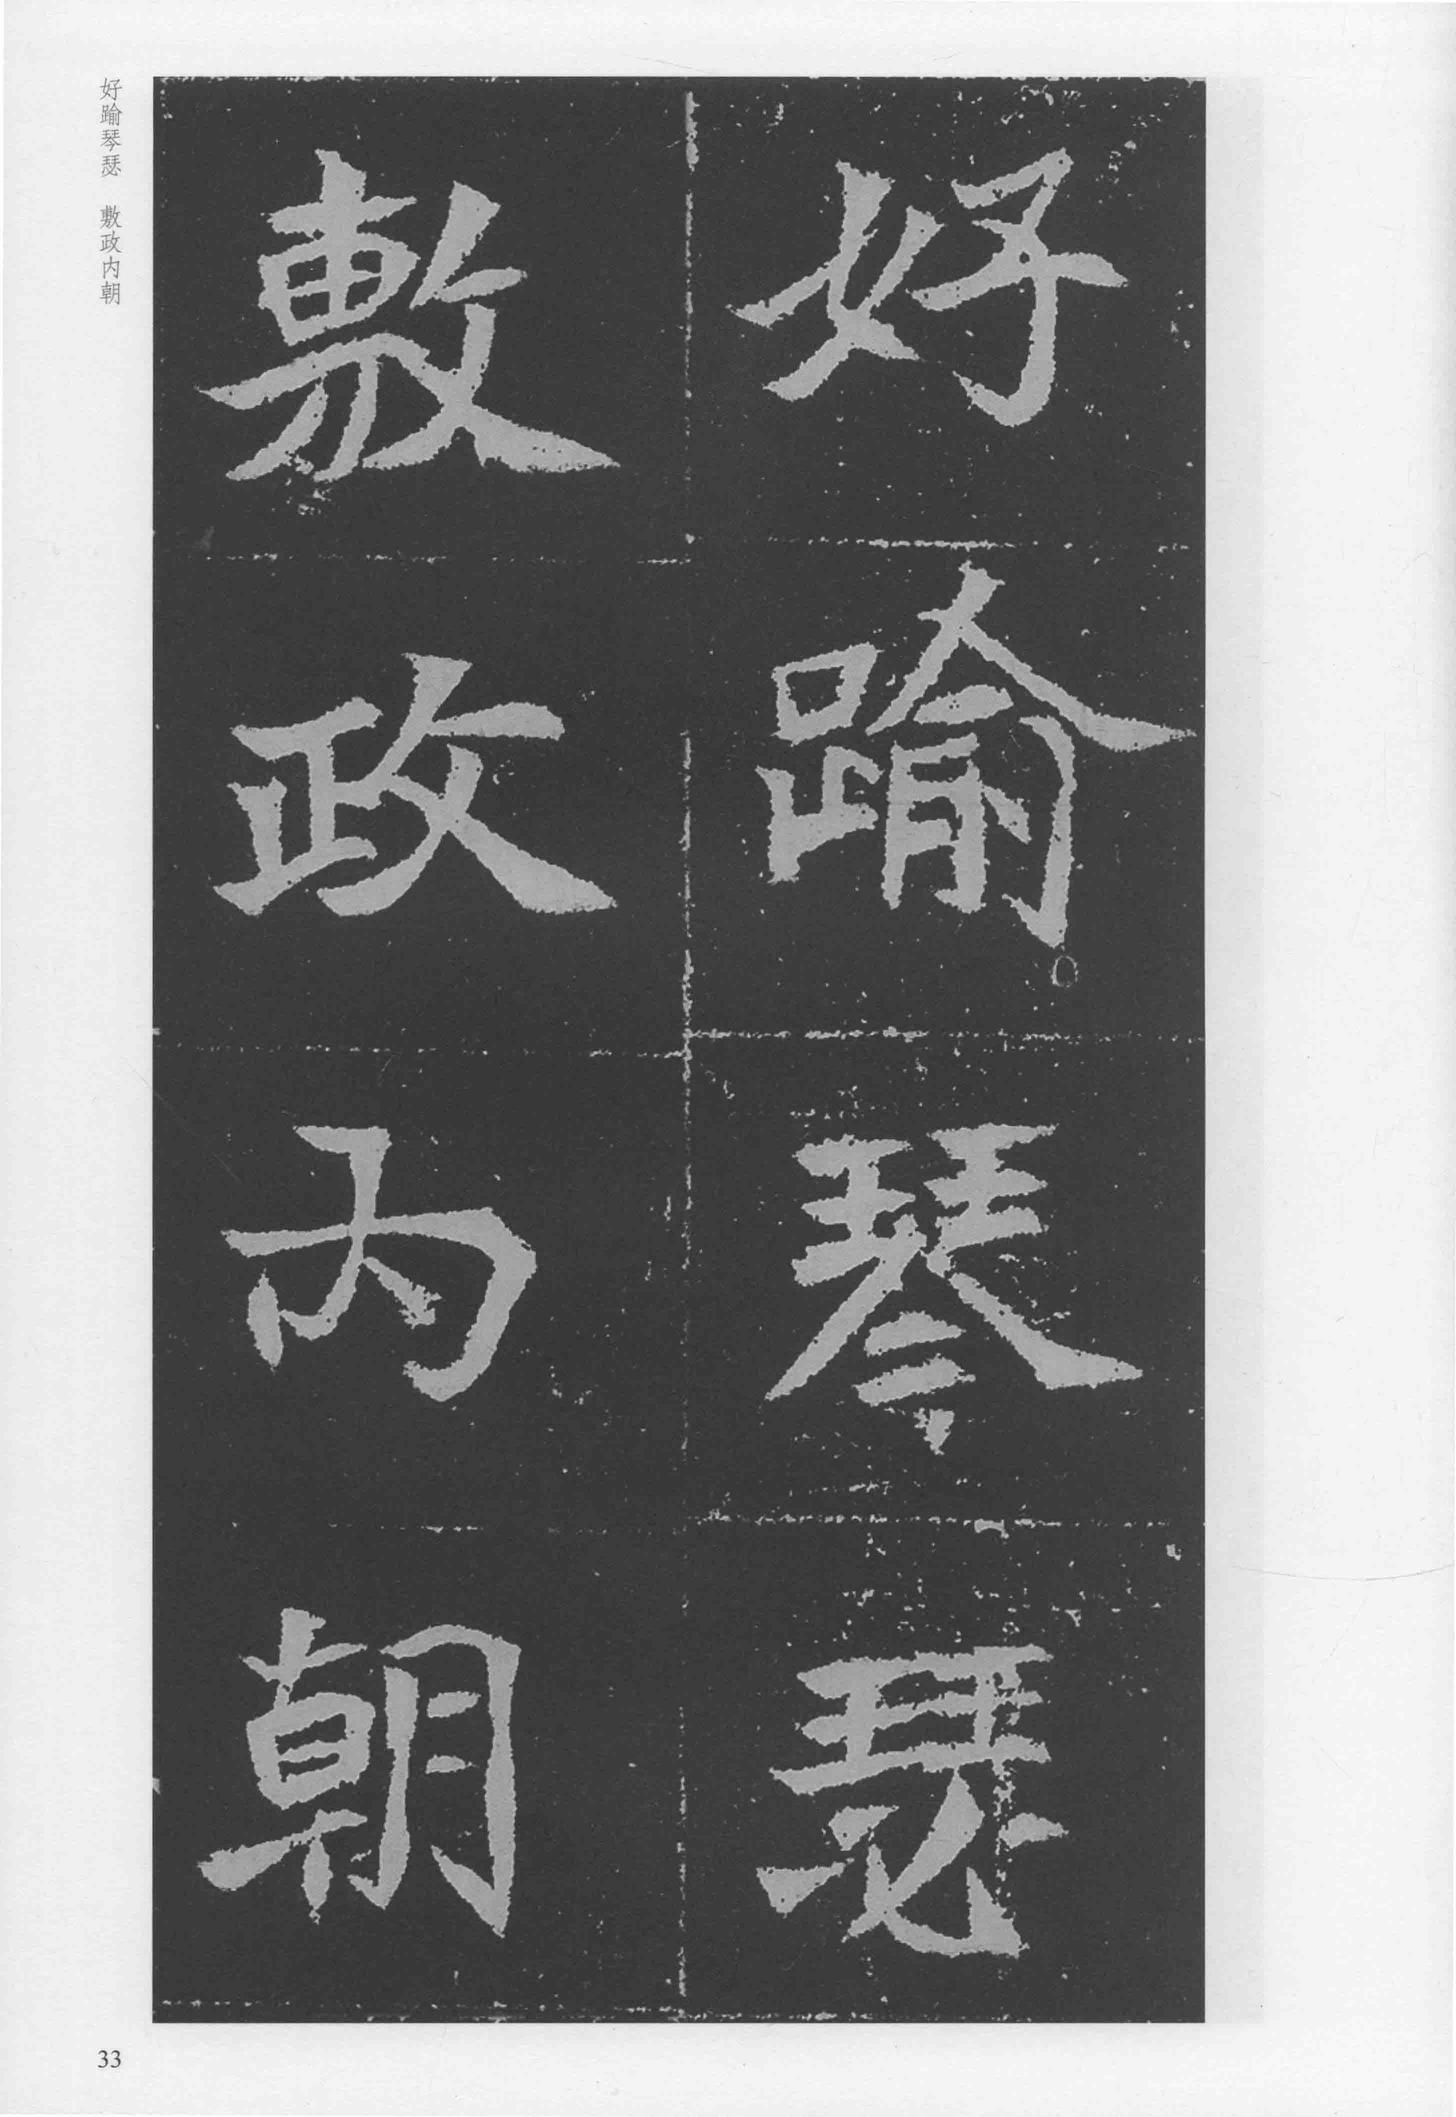 好踰琴瑟
敷政内朝
好踰琴瑟　敷政内朝
33